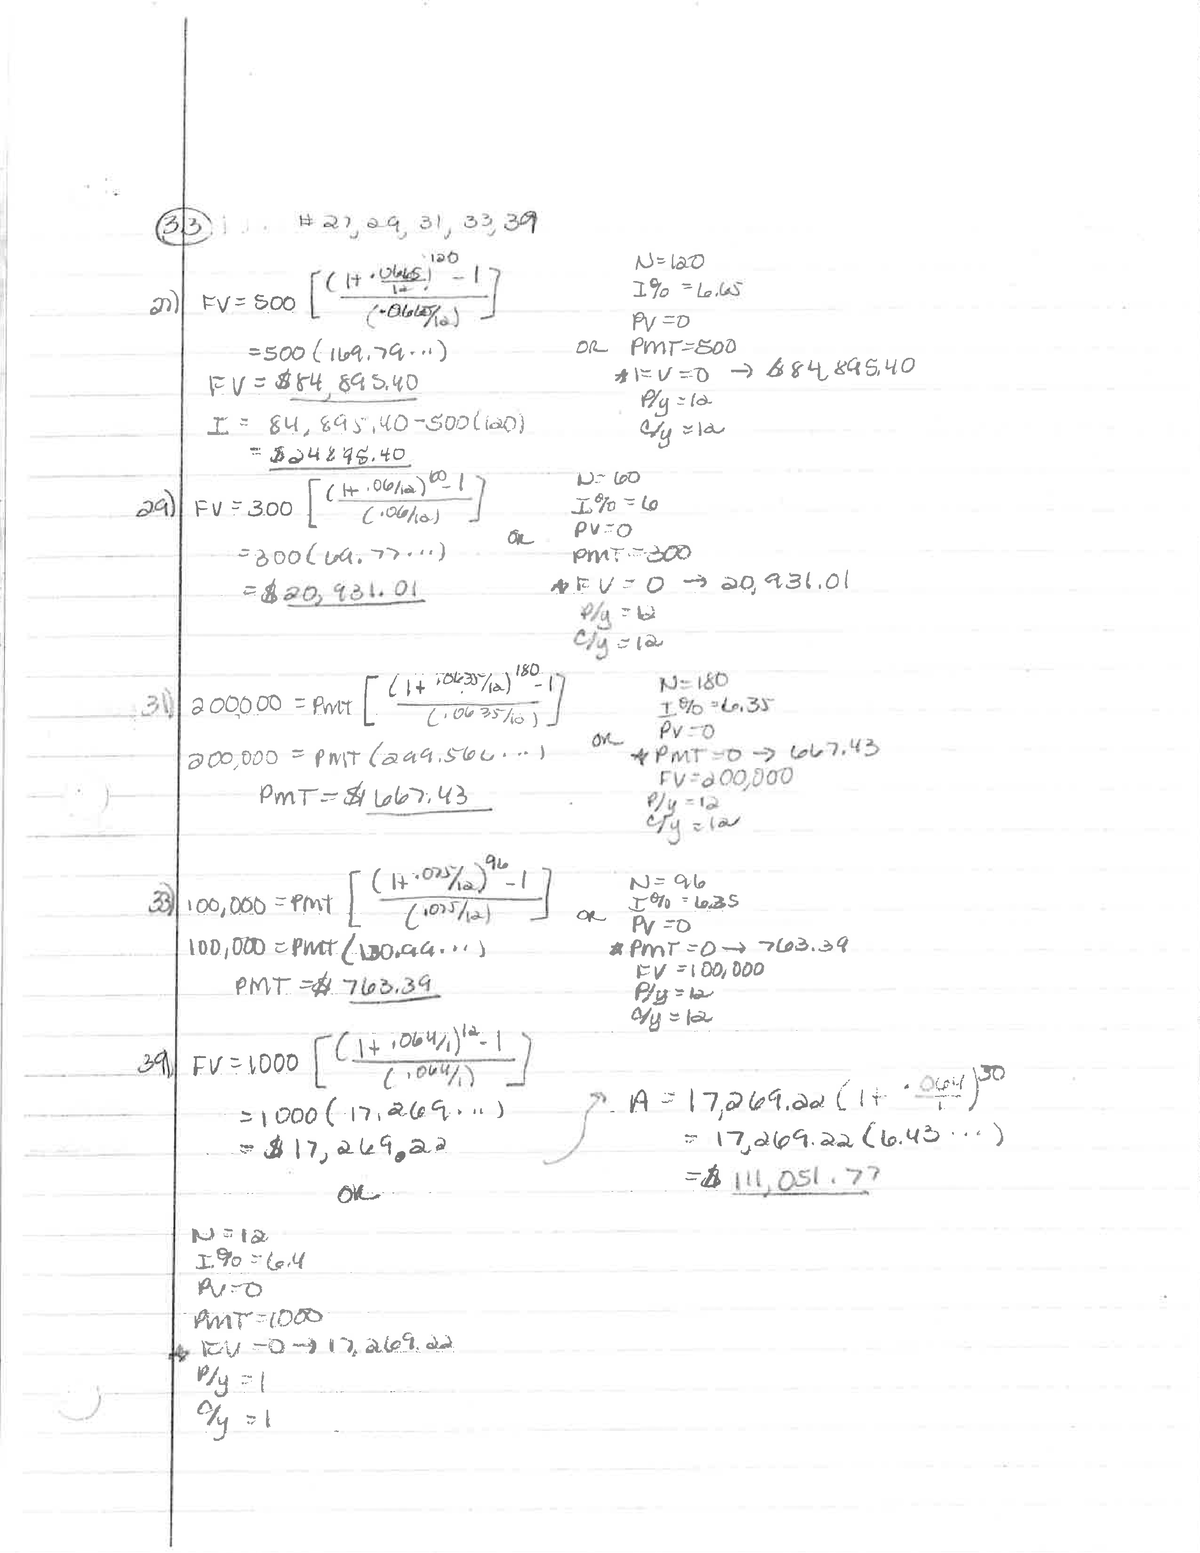 3.3 # 27, 29, 31, 33, 39
27) FV = 500 [ ((1+ .0665/12)^120 - 1) / (.0665/12) ]
= 500 (169.79...)
FV = $84,895.40
I = 84,895.40 - 500(120)
= $24895.40
OR
N=120
I% = 6.65
PV=0
PMT=500
* FV=0 → $84,895.40
P/y = 12
C/y = 12
29) FV = 300 [ ((1+ .06/12)^60 - 1) / (.06/12) ]
= 300 (69.77...)
= $20,931.01
OR
N= 60
I% = 6
PV=0
PMT = 300
* FV = 0 → 20,931.01
P/y = 12
C/y = 12
31) 200,000 = PMT [ ((1+ .0635/12)^180 - 1) / (.0635/12) ]
200,000 = PMT (299.566...)
PMT = $667.43
OR
N=180
I% = 6.35
PV=0
* PMT=0 → 667.43
FV=200,000
P/y = 12
C/y = 12
33) 100,000 = PMT [ ((1+ .075/12)^96 - 1) / (.075/12) ]
100,000 = PMT (130.99...)
PMT = $ 763.39
OR
N= 96
I% = 6.35
PV=0
* PMT=0 → 763.39
FV = 100,000
P/y = 12
C/y = 12
39) FV = 1000 [ ((1+ .064/1)^12 - 1) / (.064/1) ]
= 1000 (17.269...)
= $17,269.22
OR
N = 12
I% = 6.4
PV=0
PMT=1000
* FV =0 → 17,269.22
P/y = 1
C/y = 1
A = 17,269.22 (1+ .064/1)^30
= 17,269.22 (6.43...)
= $ 111,051.77